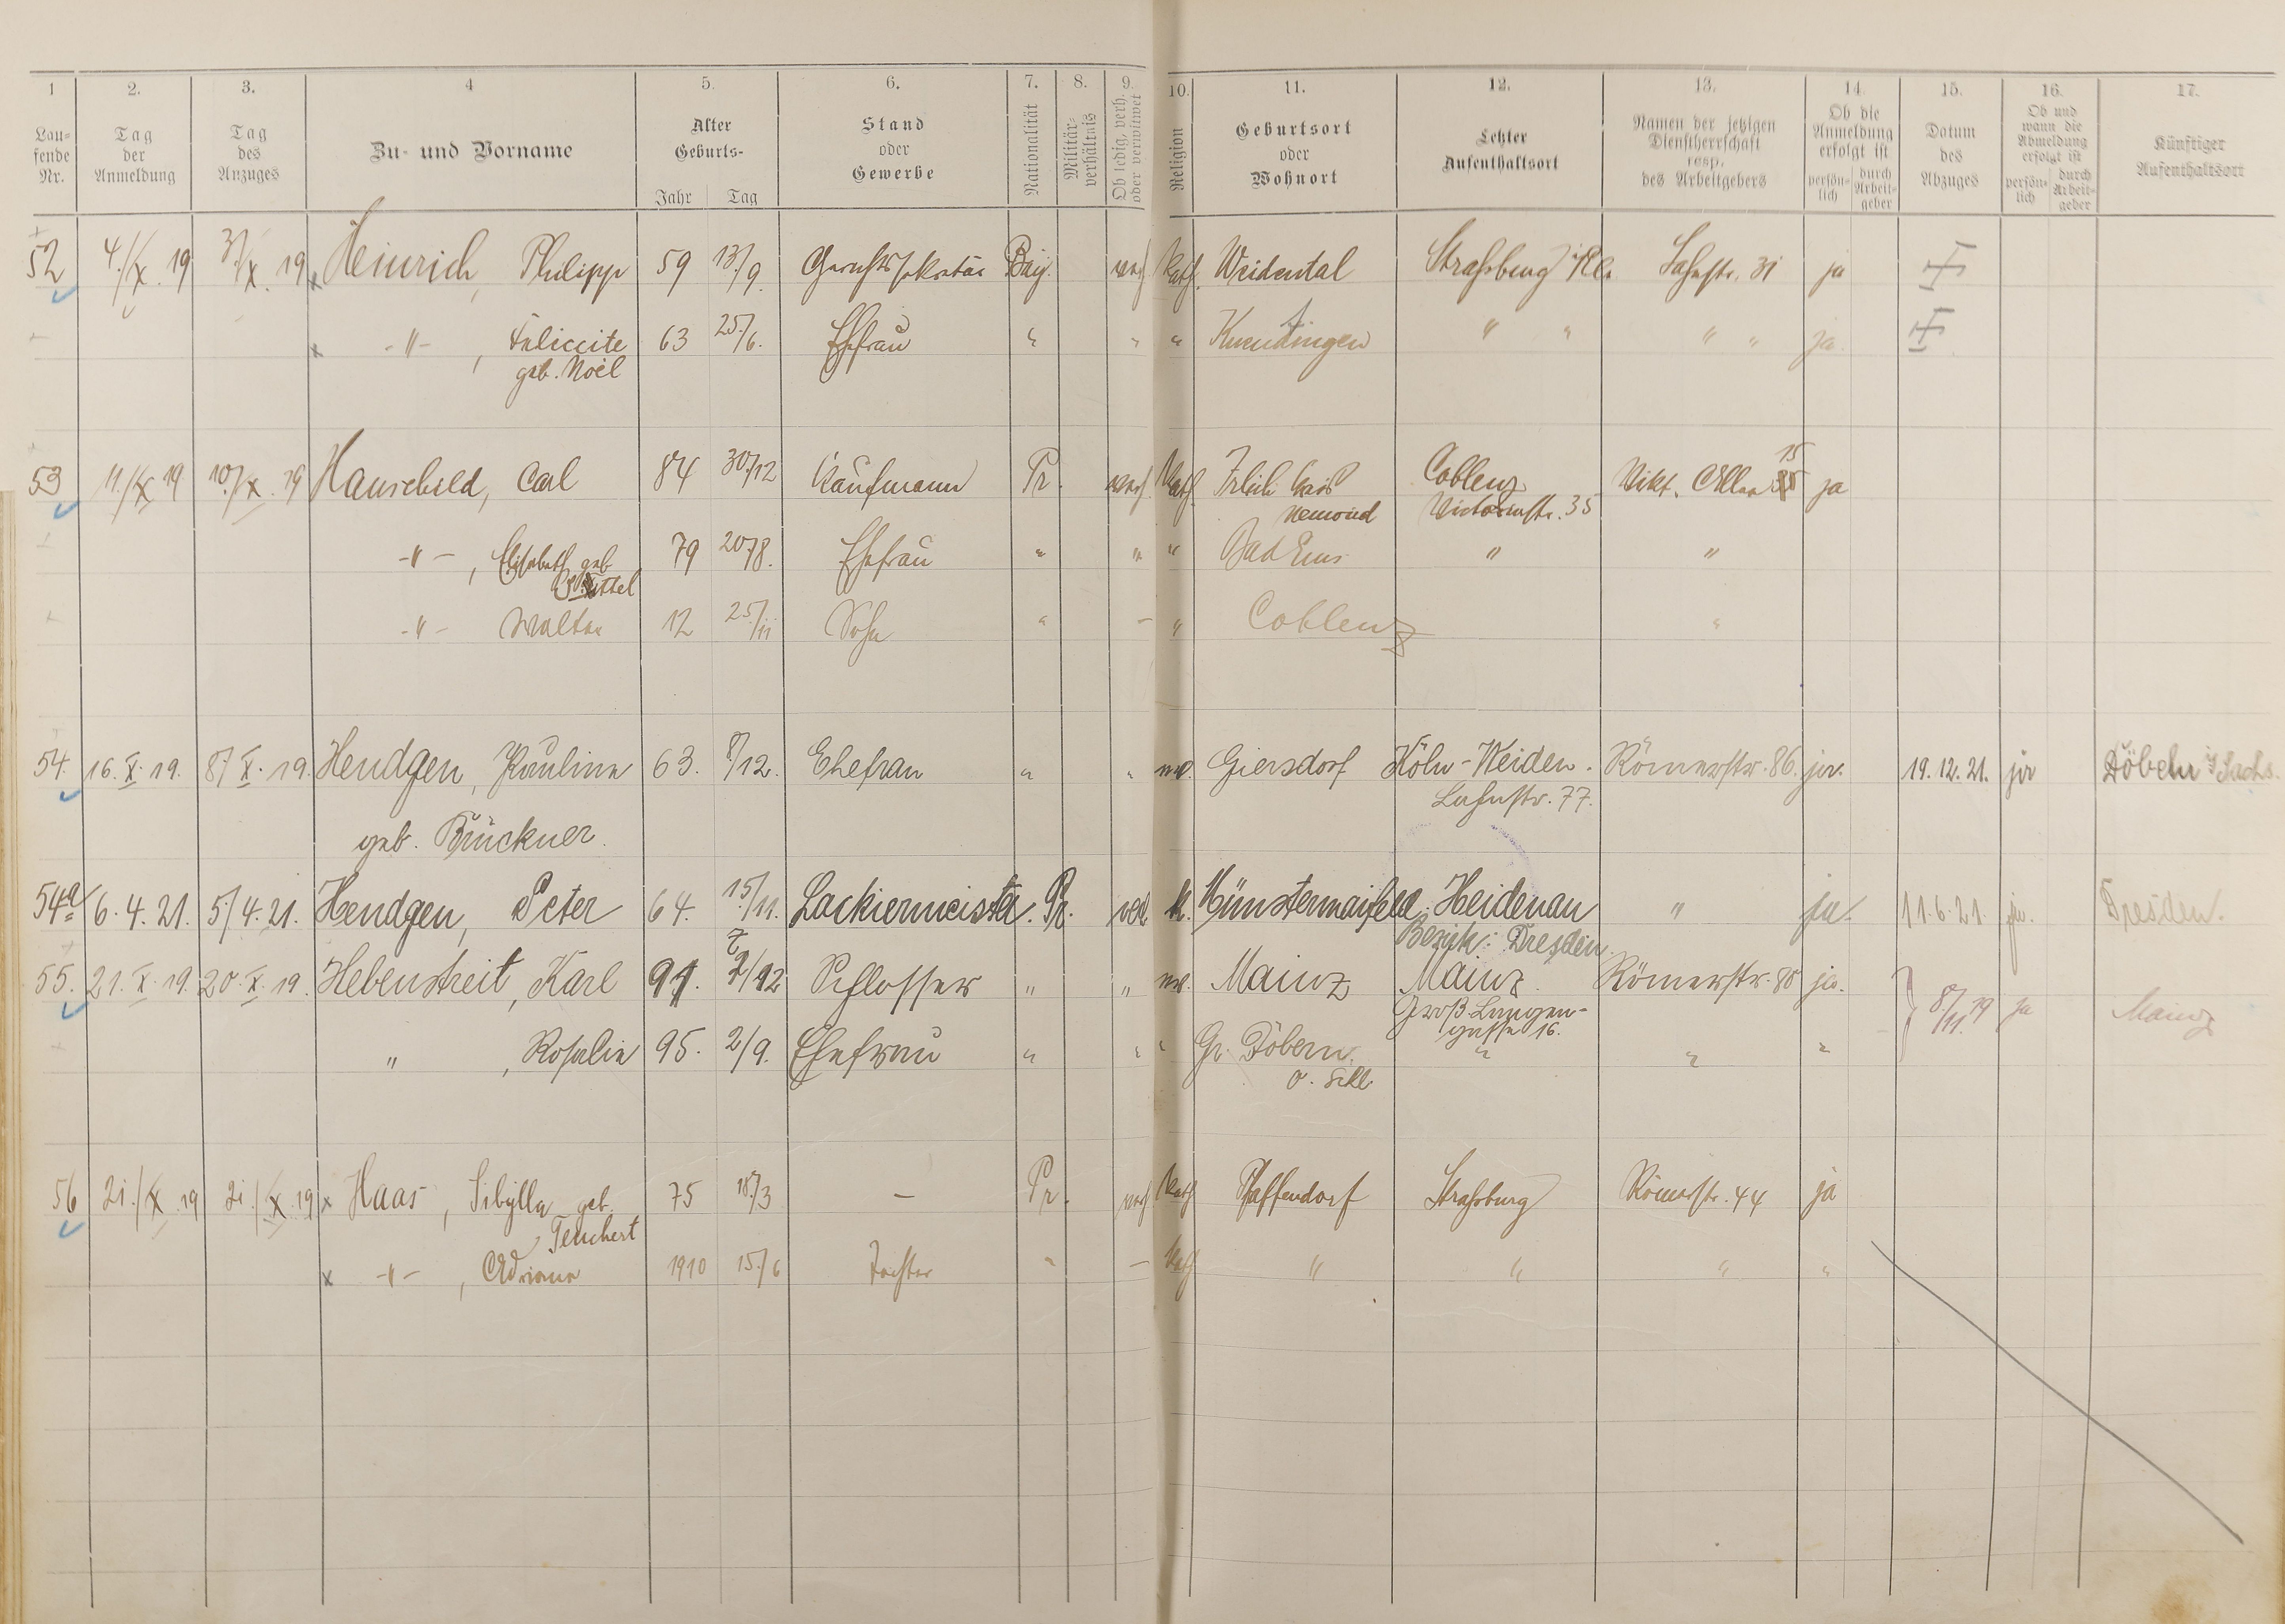 1 2. 3. 4 5. 6. 7. 8. 9. 10. 11. 12. 13. 14. 15. 16. 17.
Lau-
fende
Nr.
Tag
der
Anmeldung
Tag
des
Anzuges
Zu- und Vorname
Alter
Geburts-
Jahr Tag
Stand
oder
Gewerbe
Nationalität
Militär-
verhältnis
Ob ledig, verh.
oder verwitwet
Religion
Geburtsort
oder
Wohnort
Letzter
Aufenthaltsort
Namen der jetzigen
Dienstherrschaft
resp.
des Arbeitgebers
Ob die
Anmeldung
erfolgt ist
persön-
lich
durch
Arbeit-
geber
Datum
des
Abzuges
Ob und
wann die
Abmeldung
erfolgt ist
persön-
lich
durch
Arbeit-
geber
Künftiger
Aufenthaltsort
52 4./X. 19 3./X. 19 x Heinrich, Philipp 59 13./9. Gerichtssekretär Bay. verh. Kath. Weidental Straßburg i/Els. Lahnstr. 31 ja
x -"- , Feliccite 63 25./6. Ehefrau " " " Kuentingen " " " " ja
geb. Noël
53 11./X 19 10./X. 19 Hauschild, Carl 84 30./12 Kaufmann Pr. verh. Kath. Irlich Kreis Coblenz Vikt. Allee 15 ja
Neuwied Victoriastr. 35
-"- , Elisabeth geb. 79 20./8. Ehefrau " " " Bad Ems " "
-"- Walter 12 25./11 Sohn " - " Coblenz "
54. 16. X. 19. 8./X. 19. Hendgen, Paulina 63. 8/12. Ehefrau " " ev. Giersdorf Köln-Weiden. Römerstr. 86. ja. 19. 12. 21. ja Döbeln i/Sachs.
Lahnstr. 77.
geb. Brückner.
54a 6. 4. 21. 5./4. 21. Hendgen, Peter 64. 15./11. Lackiermeister. Pr. ver. k. Münstermaifeld. Heidenau " ja. 11. 6. 21. ja. Dresden.
Bezirk: Dresden.
55. 21. X. 19. 20. X. 19. Hebenstreit, Karl 91. 7/12 Schlosser " " ev. Mainz Mainz. Römerstr. 80 ja. 8./11. 19 ja Mainz
Groß Langen-
gasse 16.
" , Rosalia 95. 2/9. Ehefrau " " " Gr. Döbern. " " "
O. Schl.
56 21./X. 19 21./X. 19 x Haas, Sibylla geb. 75 18./3 - Pr. verh. Kath Pfaffendorf Straßburg Römerstr. 44 ja
Teuchert
x -"- , Adriana 1910 15./6 Tochter " - Kath " " " "